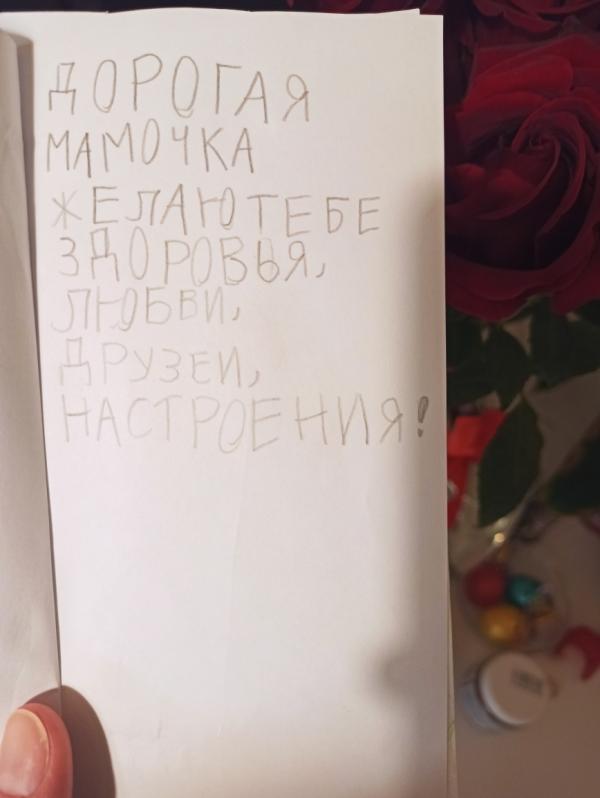 ДОРОГАЯ
МАМОЧКА
ЖЕЛАЮ ТЕБЕ
ЗДОРОВЬЯ,
ЛЮБВИ,
ДРУЗЕИ,
НАСТРОЕНИЯ!